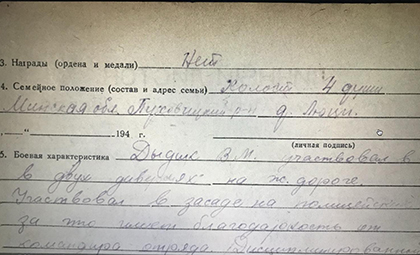 3. Награды (ордена и медали) Нет
4. Семейное положение (состав и адрес семьи) Холост 4 души
Минская обл. Пуховичский р-н д.
. — „ “ 194 г.
(личная подпись)
5. Боевая характеристика Дыдик В.М. участвовал в
в двух на ж. дороге.
Участвовал в засаде на полицейских
за что имеет благодарность от
командира отряда. Дисциплинирован